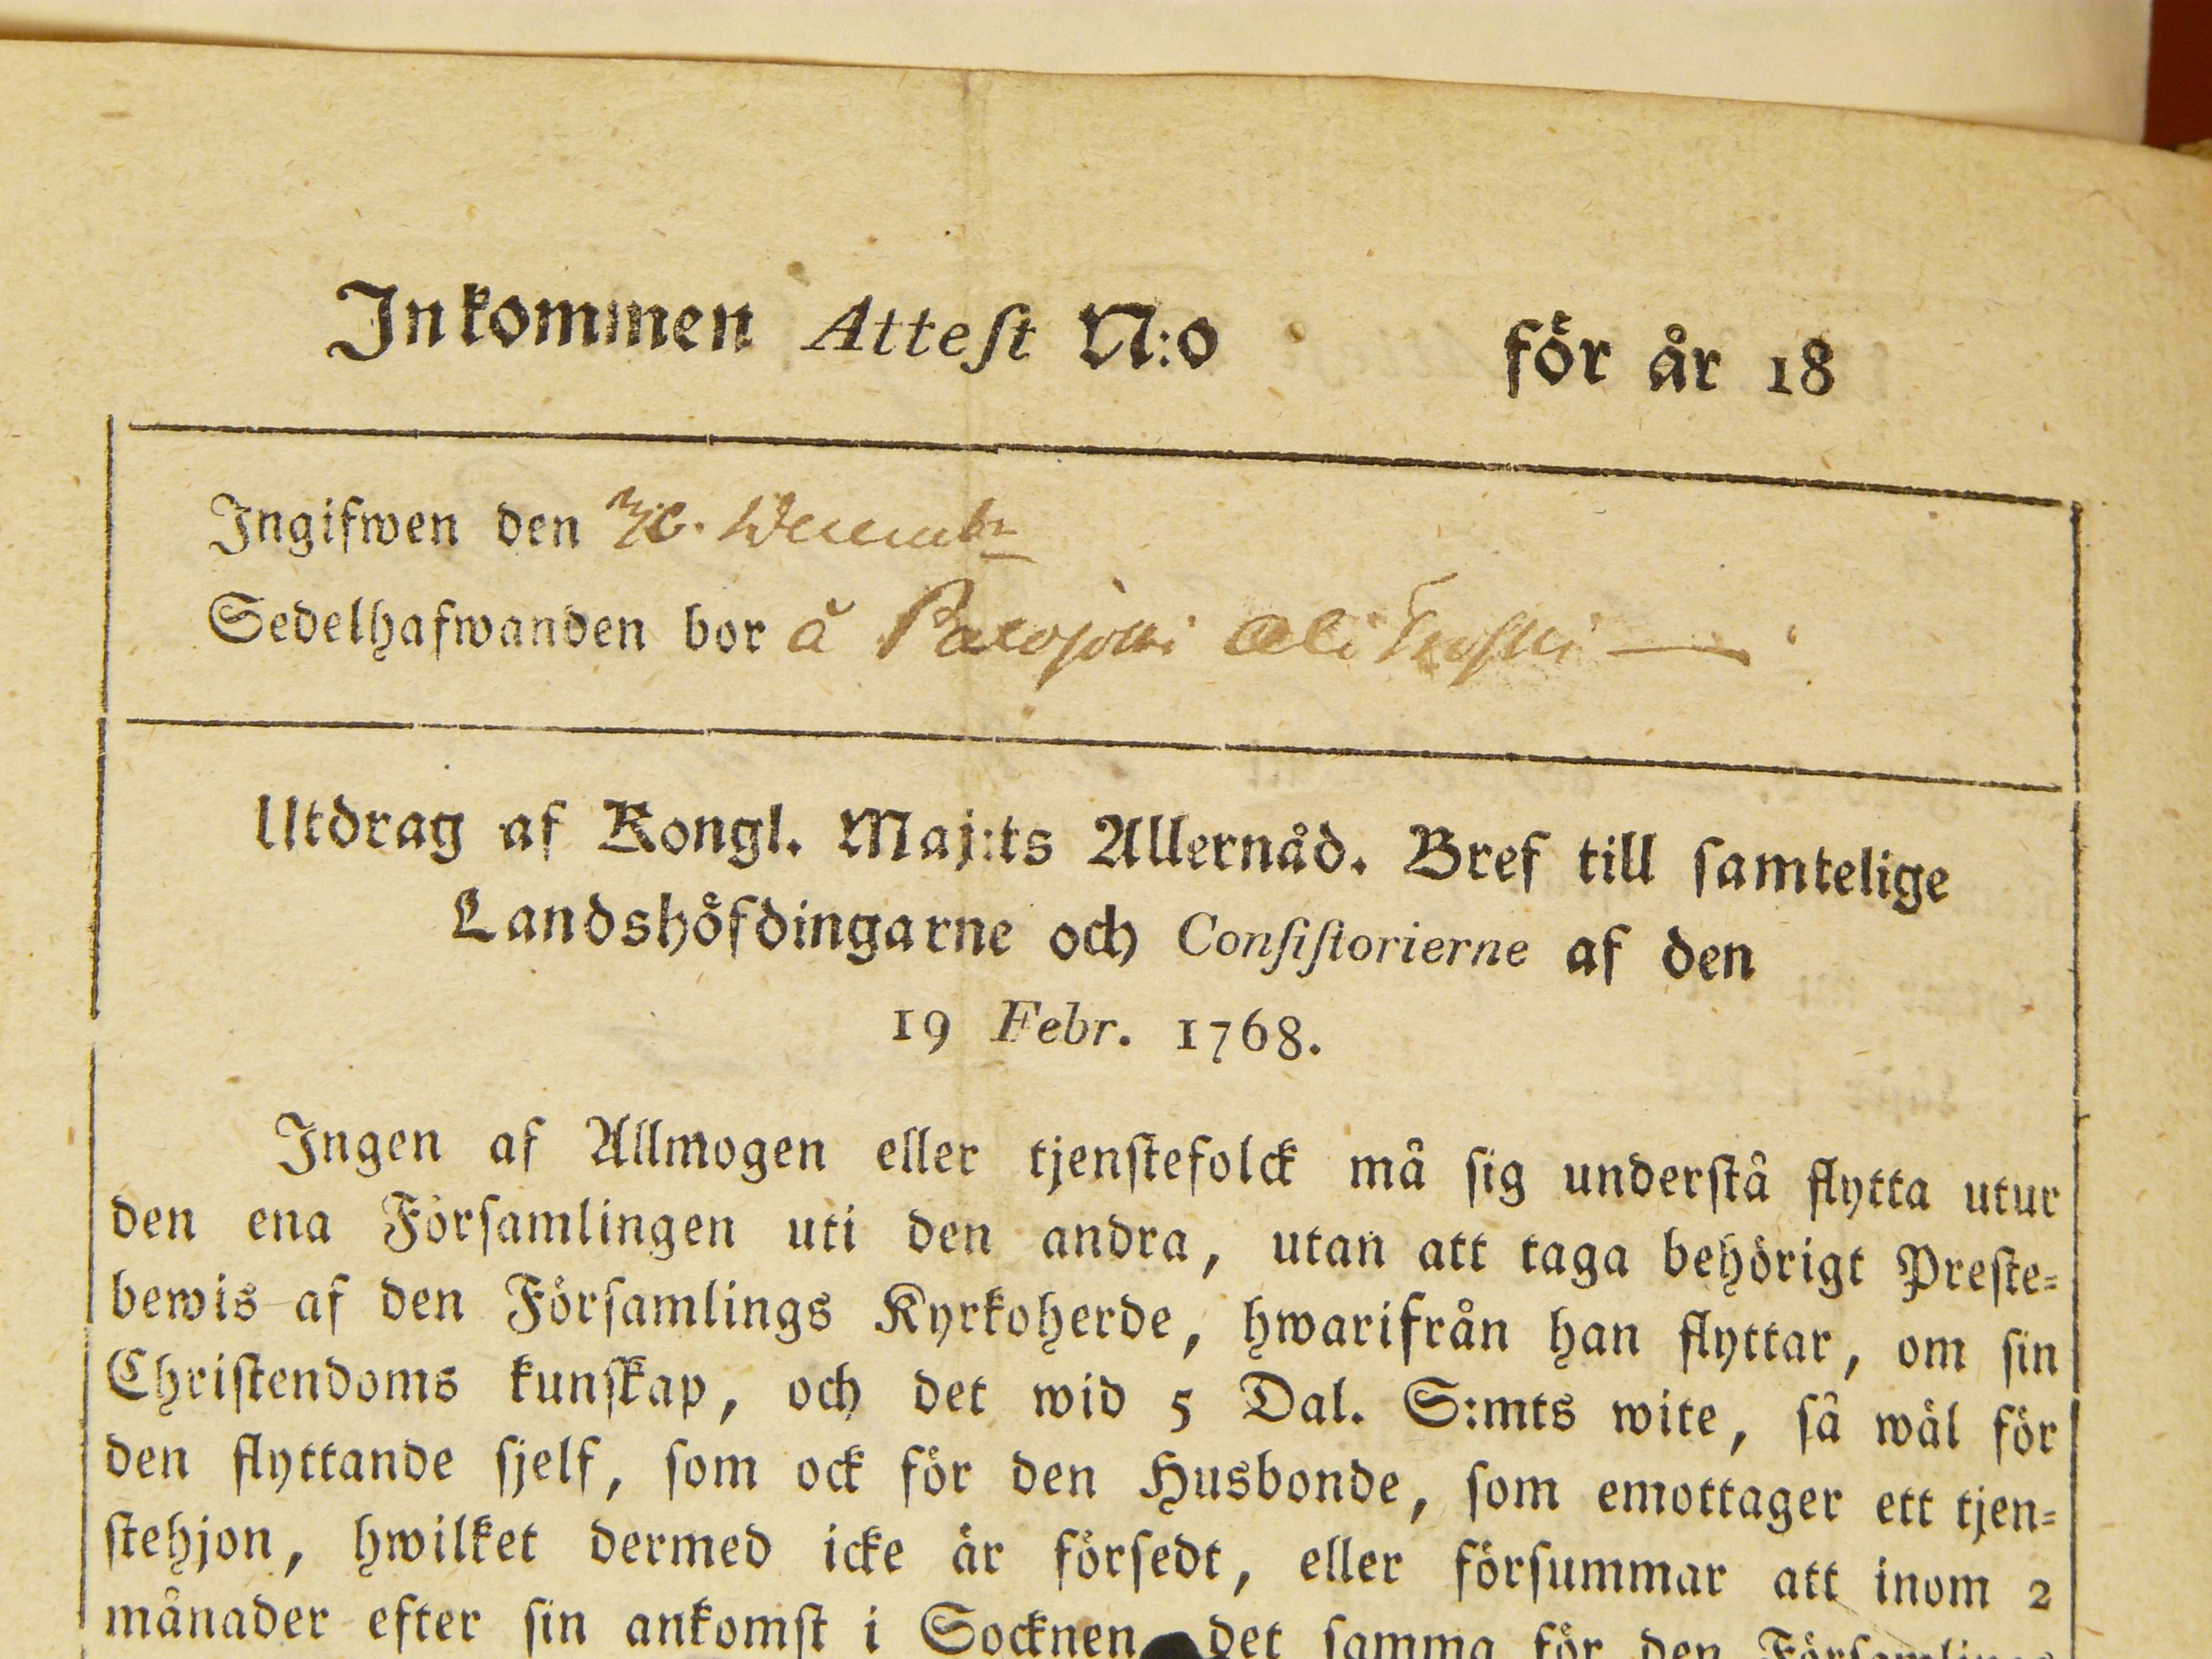 Inkommen Attest N:o för år 18
Ingifwen den Decembr
Sedelhafwanden bor å
Utdrag af Kongl. Maj:ts Allernåd. Bref till samtelige
Landshöfdingarne och Consistorierne af den
19 Febr. 1768.
Ingen af Allmogen eller tjenstefolck må sig understå flytta utur
den ena Församlingen uti den andra, utan att taga behörigt Preste-
bewis af den Församlings Kyrkoherde, hwarifrån han flyttar, om sin
Christendoms kunskap, och det wid 5 Dal. S:mts wite, så wäl för
den flyttande sjelf, som ock för den Husbonde, som emottager ett tjen-
stehjon, hwilket dermed icke är försedt, eller försummar att inom 2
månader efter sin ankomst i Socknen det samma för den Församlings